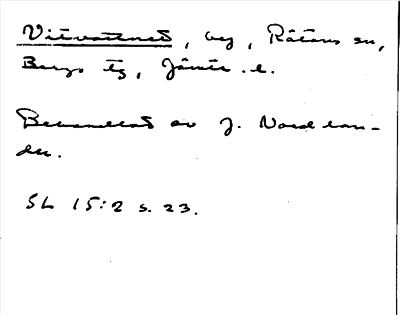 Vitvattnet, by, Rätans sn,
Bergs tg, Jämtl. l.
Behandlat av J. Nordlan-
der.
SL 15:2 s. 23.